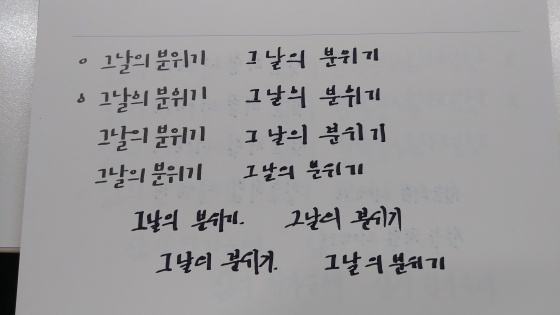 ㅇ 그날의 분위기 그날의 분위기
ㅎ 그날의 분위기 그날의 분위기
그날의 분위기 그날의 분위기
그날의 분위기 그날의 분위기
그날의 분위기. 그날의 분위기
그날의 분위기. 그날의 분위기